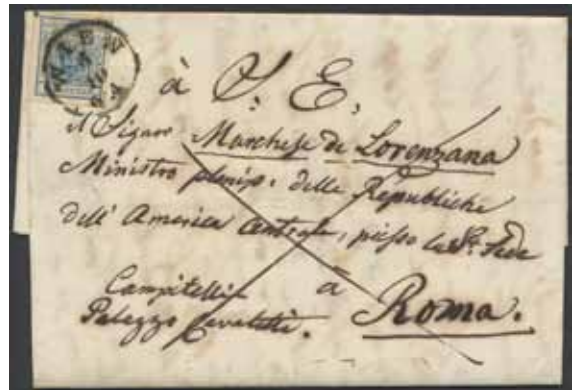 WIEN
à S. E.
il Signor Marchese de Lorenzana
Ministro plenip. delle Republiche
dell' America Centrale, presso la Sta. Sede
à
Campitelli
Roma.
Palazzo Cavaletti.